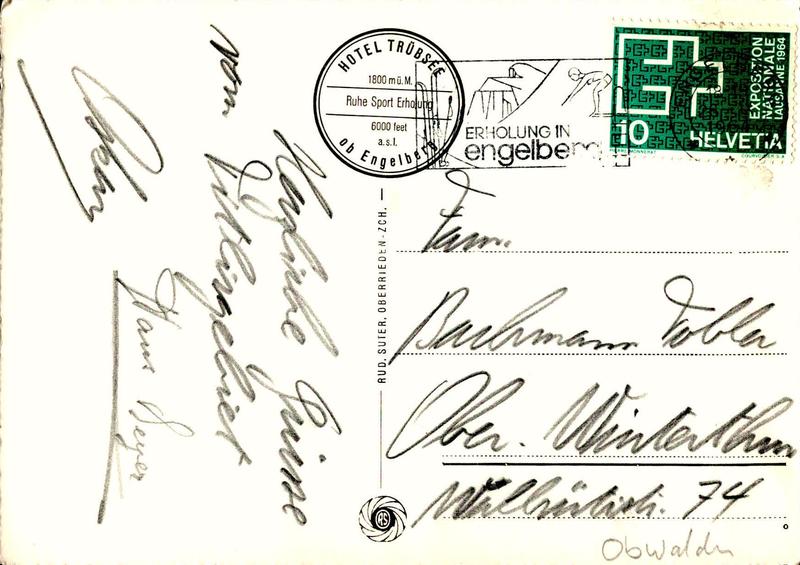 HOTEL TRÜBSEE
1800 m ü. M.
Ruhe Sport Erholung
6000 feet
a.s.l.
ob Engelberg
ERHOLUNG IN
engelberg
EXPOSITION
NATIONALE
LAUSANNE 1964
10
HELVETIA
COURVOISIER S.A.
RUD. SUTER, OBERRIEDEN-ZCH.
RS
Herzliche Grüsse
vom
Hans Meyer
Fam.
Bachmann Tobler
Ober. Winterthur
74
Obwalden